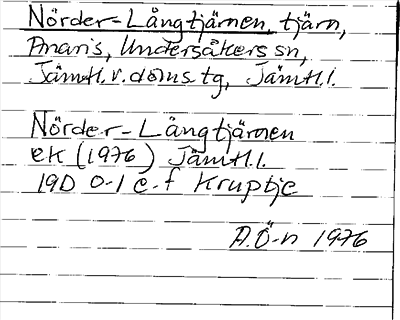 Nörder-Långtjärnen, tjärn,
Anaris, Undersåkers sn,
Jämtl.v.doms tg, Jämtl.l.
Nörder-Långtjärnen
ek (1976) Jämtl.l.
19D 0-1 e-f Kruptje
A.Ö-n 1976